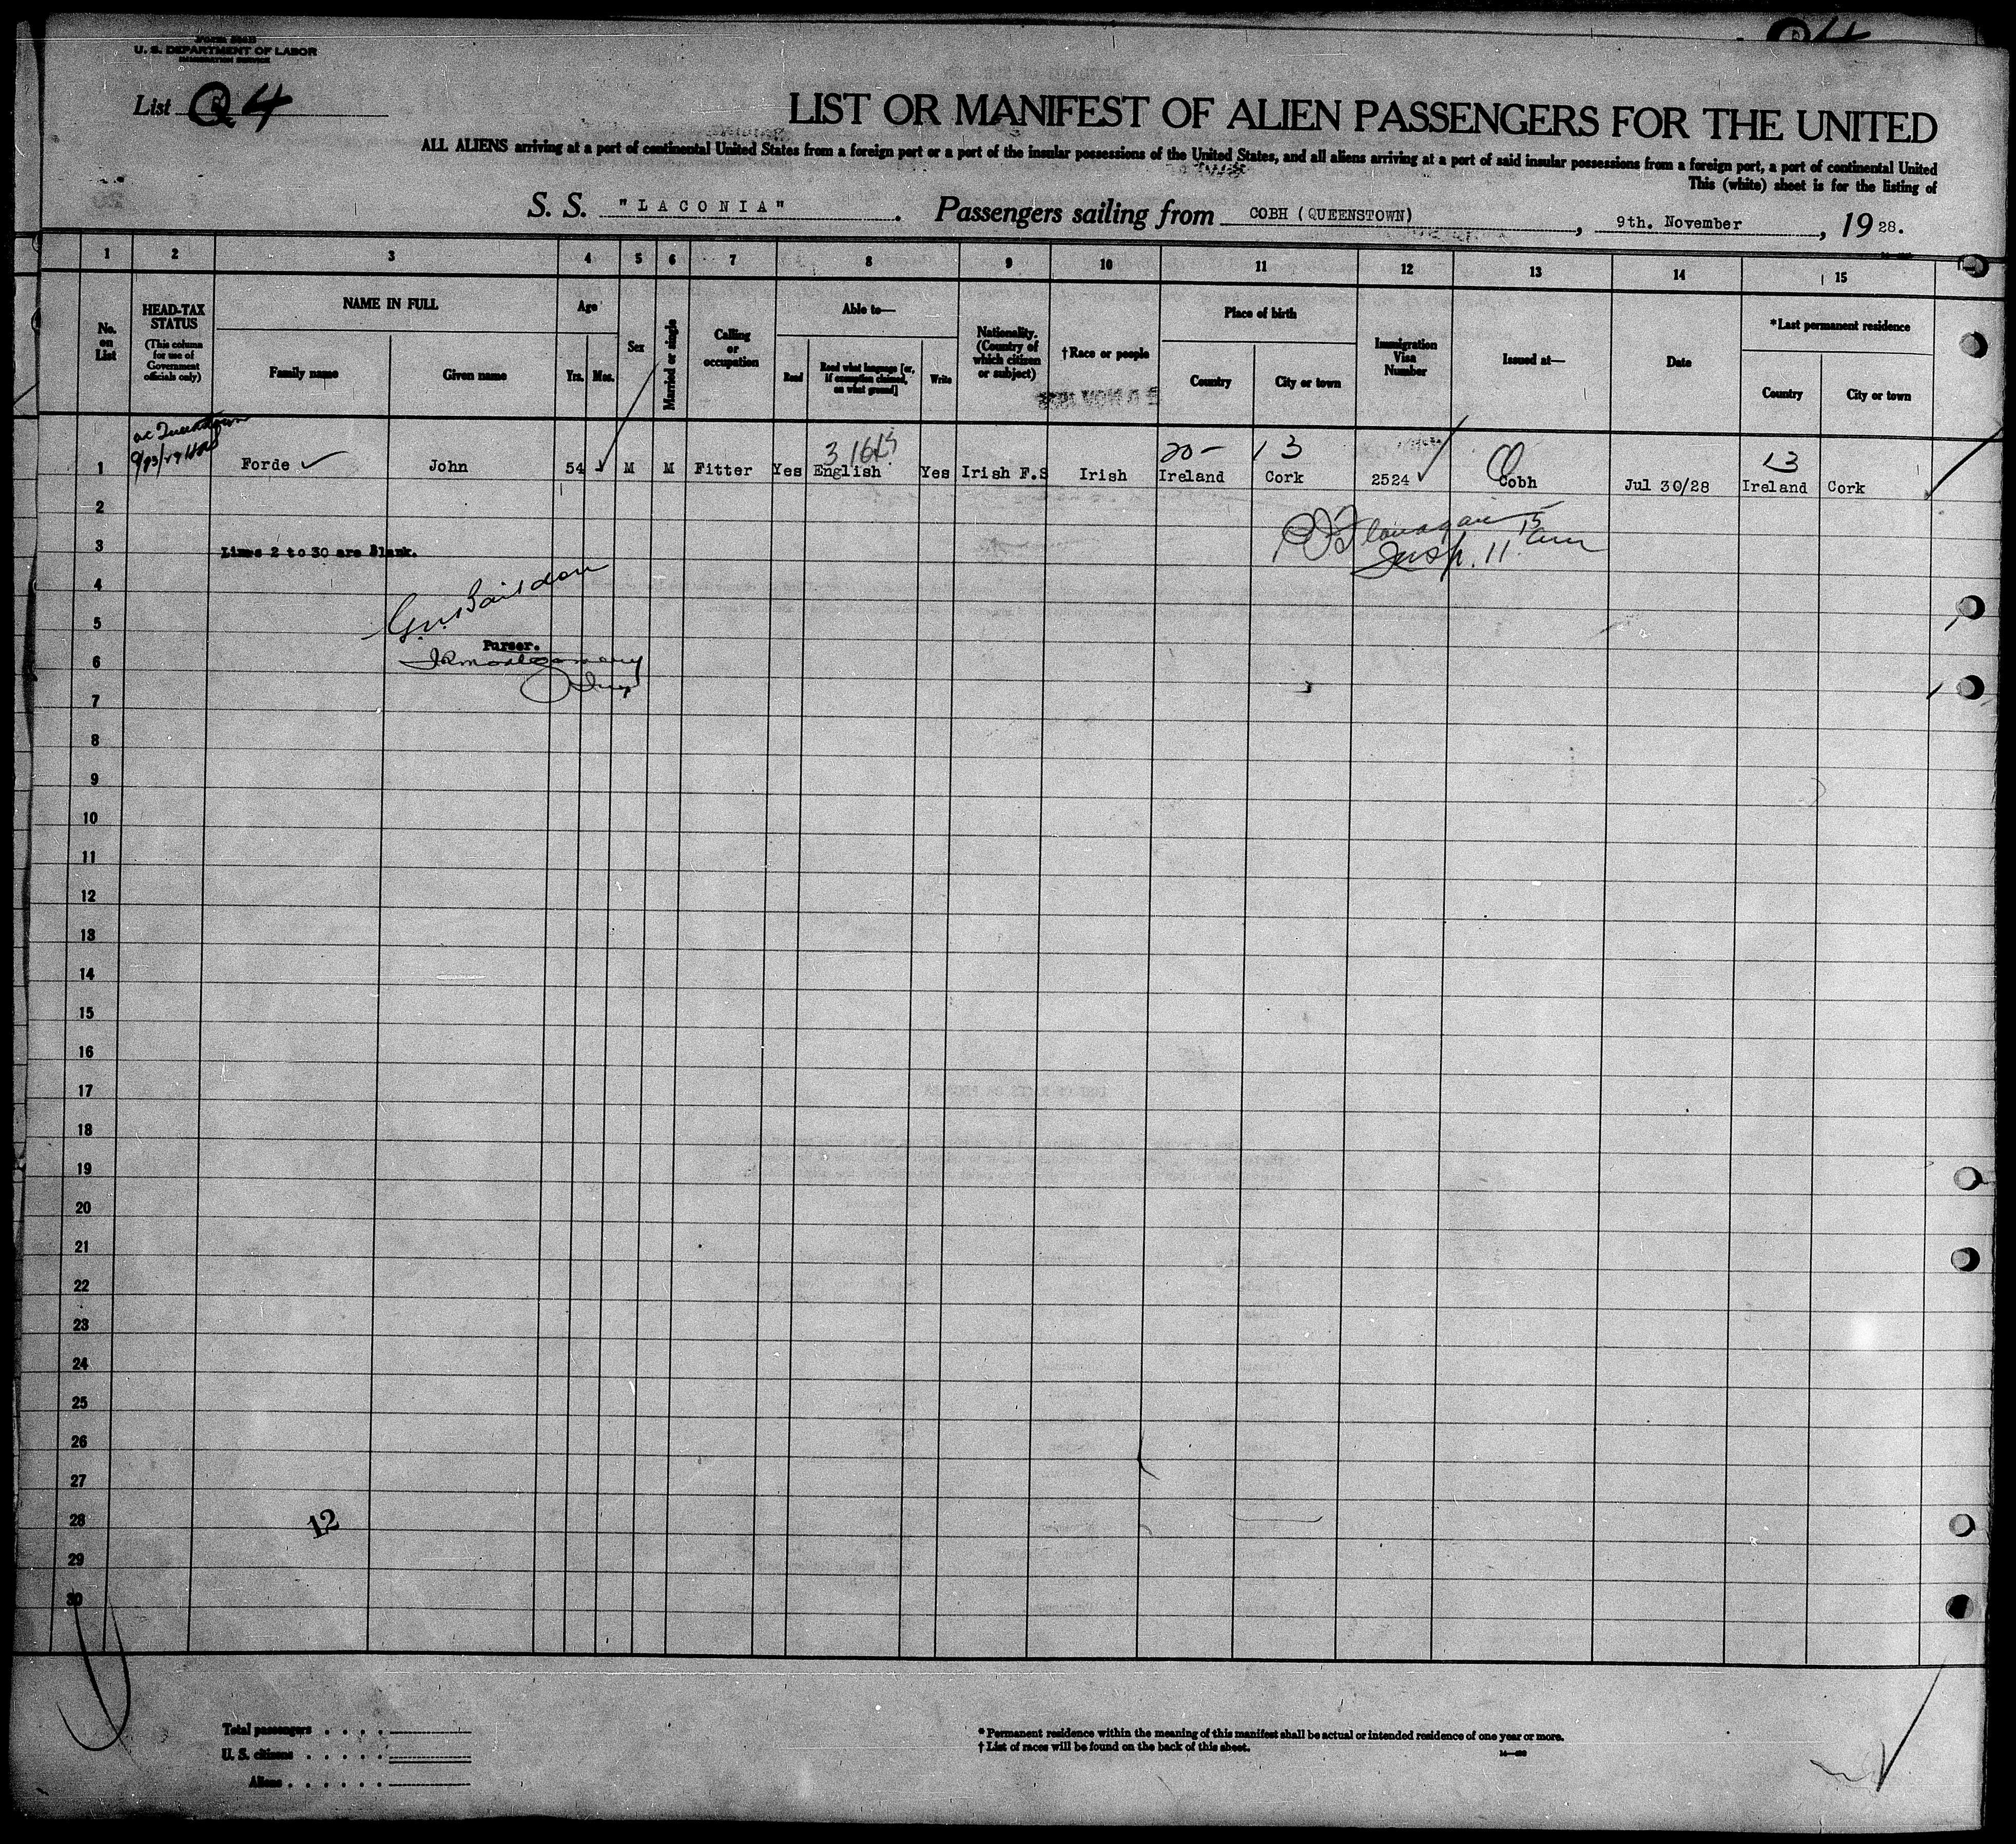 U. S. DEPARTMENT OF LABOR
IMMIGRATION SERVICE
List Q4
LIST OR MANIFEST OF ALIEN PASSENGERS FOR THE UNITED
ALL ALIENS arriving at a port of continental United States from a foreign port or a port of the insular possessions of the United States, and all aliens arriving at a port of said insular possessions from a foreign port, a port of continental United
This (white) sheet is for the listing of
S. S. "LACONIA". Passengers sailing from COBH (QUEENSTOWN), 9th. November, 1928.
1 2 3 4 5 6 7 8 9 10 11 12 13 14 15
No. on List
HEAD-TAX STATUS
(This column for use of Government officials only)
NAME IN FULL
Family name
Given name
Age
Yrs. Mos.
Sex
Married or single
Calling or occupation
Able to—
Read
Read what language [or, if exemption claimed, on what ground]
Write
Nationality. (Country of which citizen or subject)
†Race or people
Place of birth
Country
City or town
Immigration Visa Number
Issued at—
Date
*Last permanent residence
Country
City or town
20- 13 13
1 Forde ✓ John 54 ✓ M M Fitter Yes English Yes Irish F.S Irish Ireland Cork 2524 ✓ Cobh Jul 30/28 Ireland Cork
2
3 Lines 2 to 30 are Blank.
Insp. 11
4
5
Purser.
6
7
8
9
10
11
12
13
14
15
16
17
18
19
20
21
22
23
24
25
26
27
28
12
29
30
Total passengers . . . .
U. S. citizens . . . . .
Aliens . . . . . .
* Permanent residence within the meaning of this manifest shall be actual or intended residence of one year or more.
† List of races will be found on the back of this sheet.